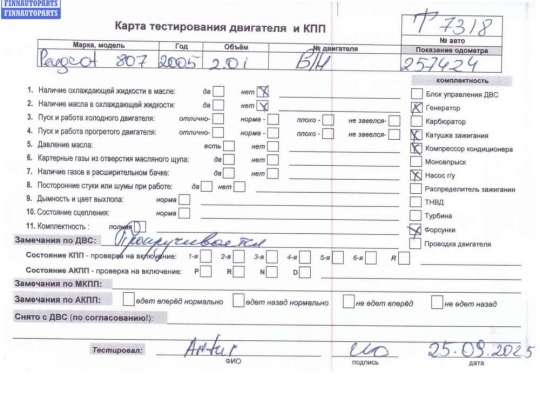 FINNAUTOPARTS
FINNAUTOPARTS
Карта тестирования двигателя и КПП
Т 7318
№ авто
Марка, модель Год Объём № двигателя Показание одометра
Peugeot 807 2005 2.0i Б/Н 257424
комплектность
1. Наличие охлаждающей жидкости в масле: да нет X
2. Наличие масла в охлаждающей жидкости: да нет X
3. Пуск и работа холодного двигателя: отлично- норма - плохо - не завелся-
4. Пуск и работа прогретого двигателя: отлично- норма - плохо - не завелся-
5. Давление масла: есть нет
6. Картерные газы из отверстия масляного щупа: да нет
7. Наличие газов в расширительном бачке: да нет
8. Посторонние стуки или шумы при работе: да нет
9. Дымность и цвет выхлопа: норма
10. Состояние сцепления: норма
11. Комплектность : полная
Блок управления ДВС
X Генератор
Карбюратор
X Катушка зажигания
X Компрессор кондиционера
Моновпрыск
X Насос г/у
Распределитель зажигания
ТНВД
Турбина
X Форсунки
Проводка двигателя
Замечания по ДВС: Прокручивается
Состояние КПП - проверка на включение: 1-я 2-я 3-я 4-я 5-я 6-я R
Состояние АКПП - проверка на включение: P R N D
Замечания по МКПП:
Замечания по АКПП: едет вперёд нормально едет назад нормально не едет вперёд не едет назад
Снято с ДВС (по согласованию!):
Тестировал: 25.09.2025
ФИО подпись дата